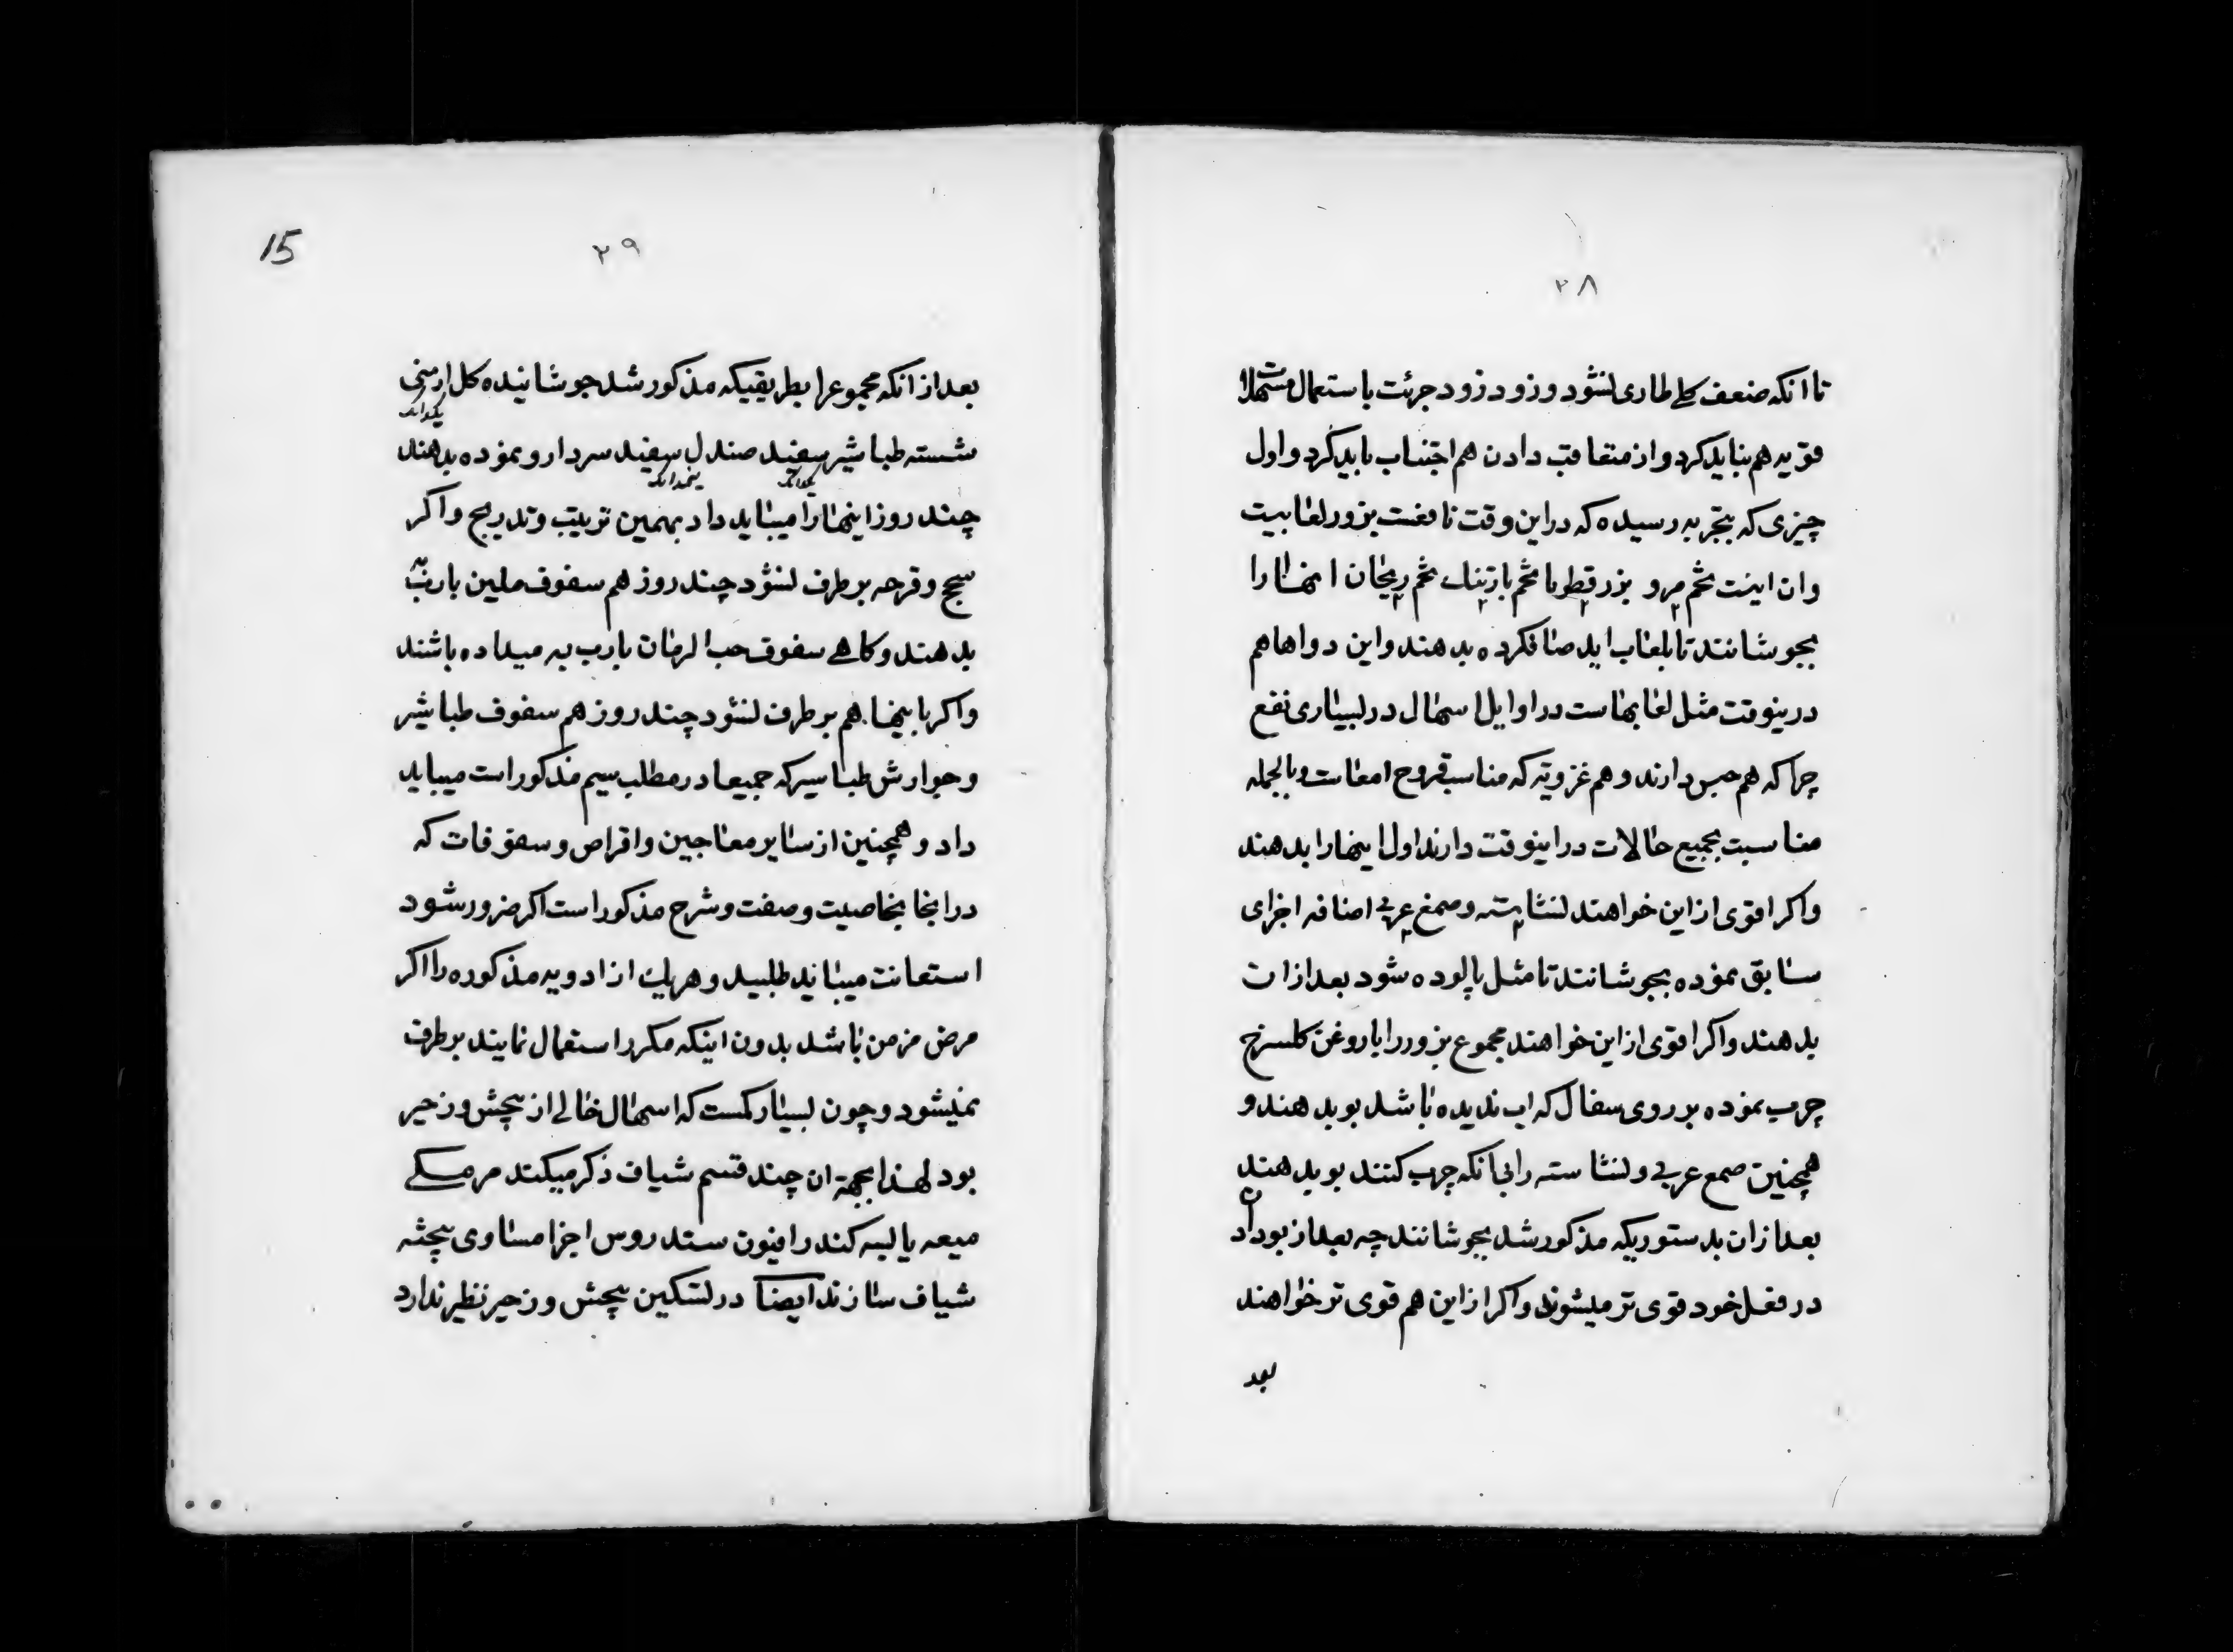 ۲۸
تا انکه ضعف کلے طاری نشود و زود زود جرئت باستعمال مسهلات
قویه هم نباید کرد و از متعاقب دادن هم اجتناب باید کرد و اول
چیزی که بتجربه رسیده که در این وقت نافعست بزور لعابیست
و ان اینست تخم مرو بزرقطونا تخم بارتنک تخم ریحان اینها را
بجوشانند تا بلعاب اید صاف کرده بدهند و این دواها هم
درینوقت مثل لعابهاست در اوایل اسهال در بسیاری نفع
چرا که هم حبس دارند و هم غرویة که مناسب قروح امعاست و بالجمله
مناسبت بجمیع حالات در اینوقت دارند اول اینها را بدهند
و اکر اقوی از این خواهند نشاسته و صمغ عربی اضافه اجزای
سابق نموده بجوشانند تا مثل پالوده شود بعد از ان
بدهند و اکر اقوی از این خواهند مجموع بزور را با روغن کلسرخ
چرب نموده بر روی سفال که اب ندیده باشد بو بدهند و
همچنین صمغ عربی و نشاسته را بی انکه چرب کنند بو بدهند
بعد از ان بدستوریکه مذکور شد بجوشانند چه بعد از بو دادن
در فعل خود قوی تر میشوند و اکر از این هم قوی تر خواهند
بعد
15
۲۹
بعد از انکه مجموع را بطریقیکه مذکور شد جوشانیده کل ارمنی
شسته طباشیر سفید صندل سفید سردارو نموده بدهند
چند روز اینها را میباید داد بهمین ترتیب و تدریج و اکر
سحج و قرحه برطرف نشود چند روز هم سفوف ملین با رب به
بدهند و کاهے سفوف حب الرمان با رب به میداده باشند
و اکر باینها هم برطرف نشود چند روز هم سفوف طباشیر
و جوارش طباسیر که جمیعا در مطلب سیم مذکور است میباید
داد و همچنین از سایر معاجین و اقراص و سفوفات که
در انجا بخاصیت و صفت و شرح مذکور است اکر ضرور شود
استعانت میباید طلبید و هریک از ادویه مذکوره را اکر
مرض مزمن باشد بدون اینکه مکرر استعمال نمایند برطرف
نمیشود و چون بسیار کمست که اسهال خالے از پیچش و زحیر
بود لهذا بجهة ان چند قسم شیاف ذکر میکند مر مکے
میعه یابسه کندر افیون سندروس اجزا مساوی پیچش
شیاف سازند ایضا در تسکین پیچش و زحیر نظیر ندارد